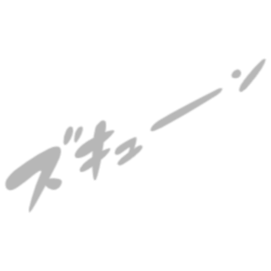 ズキューン